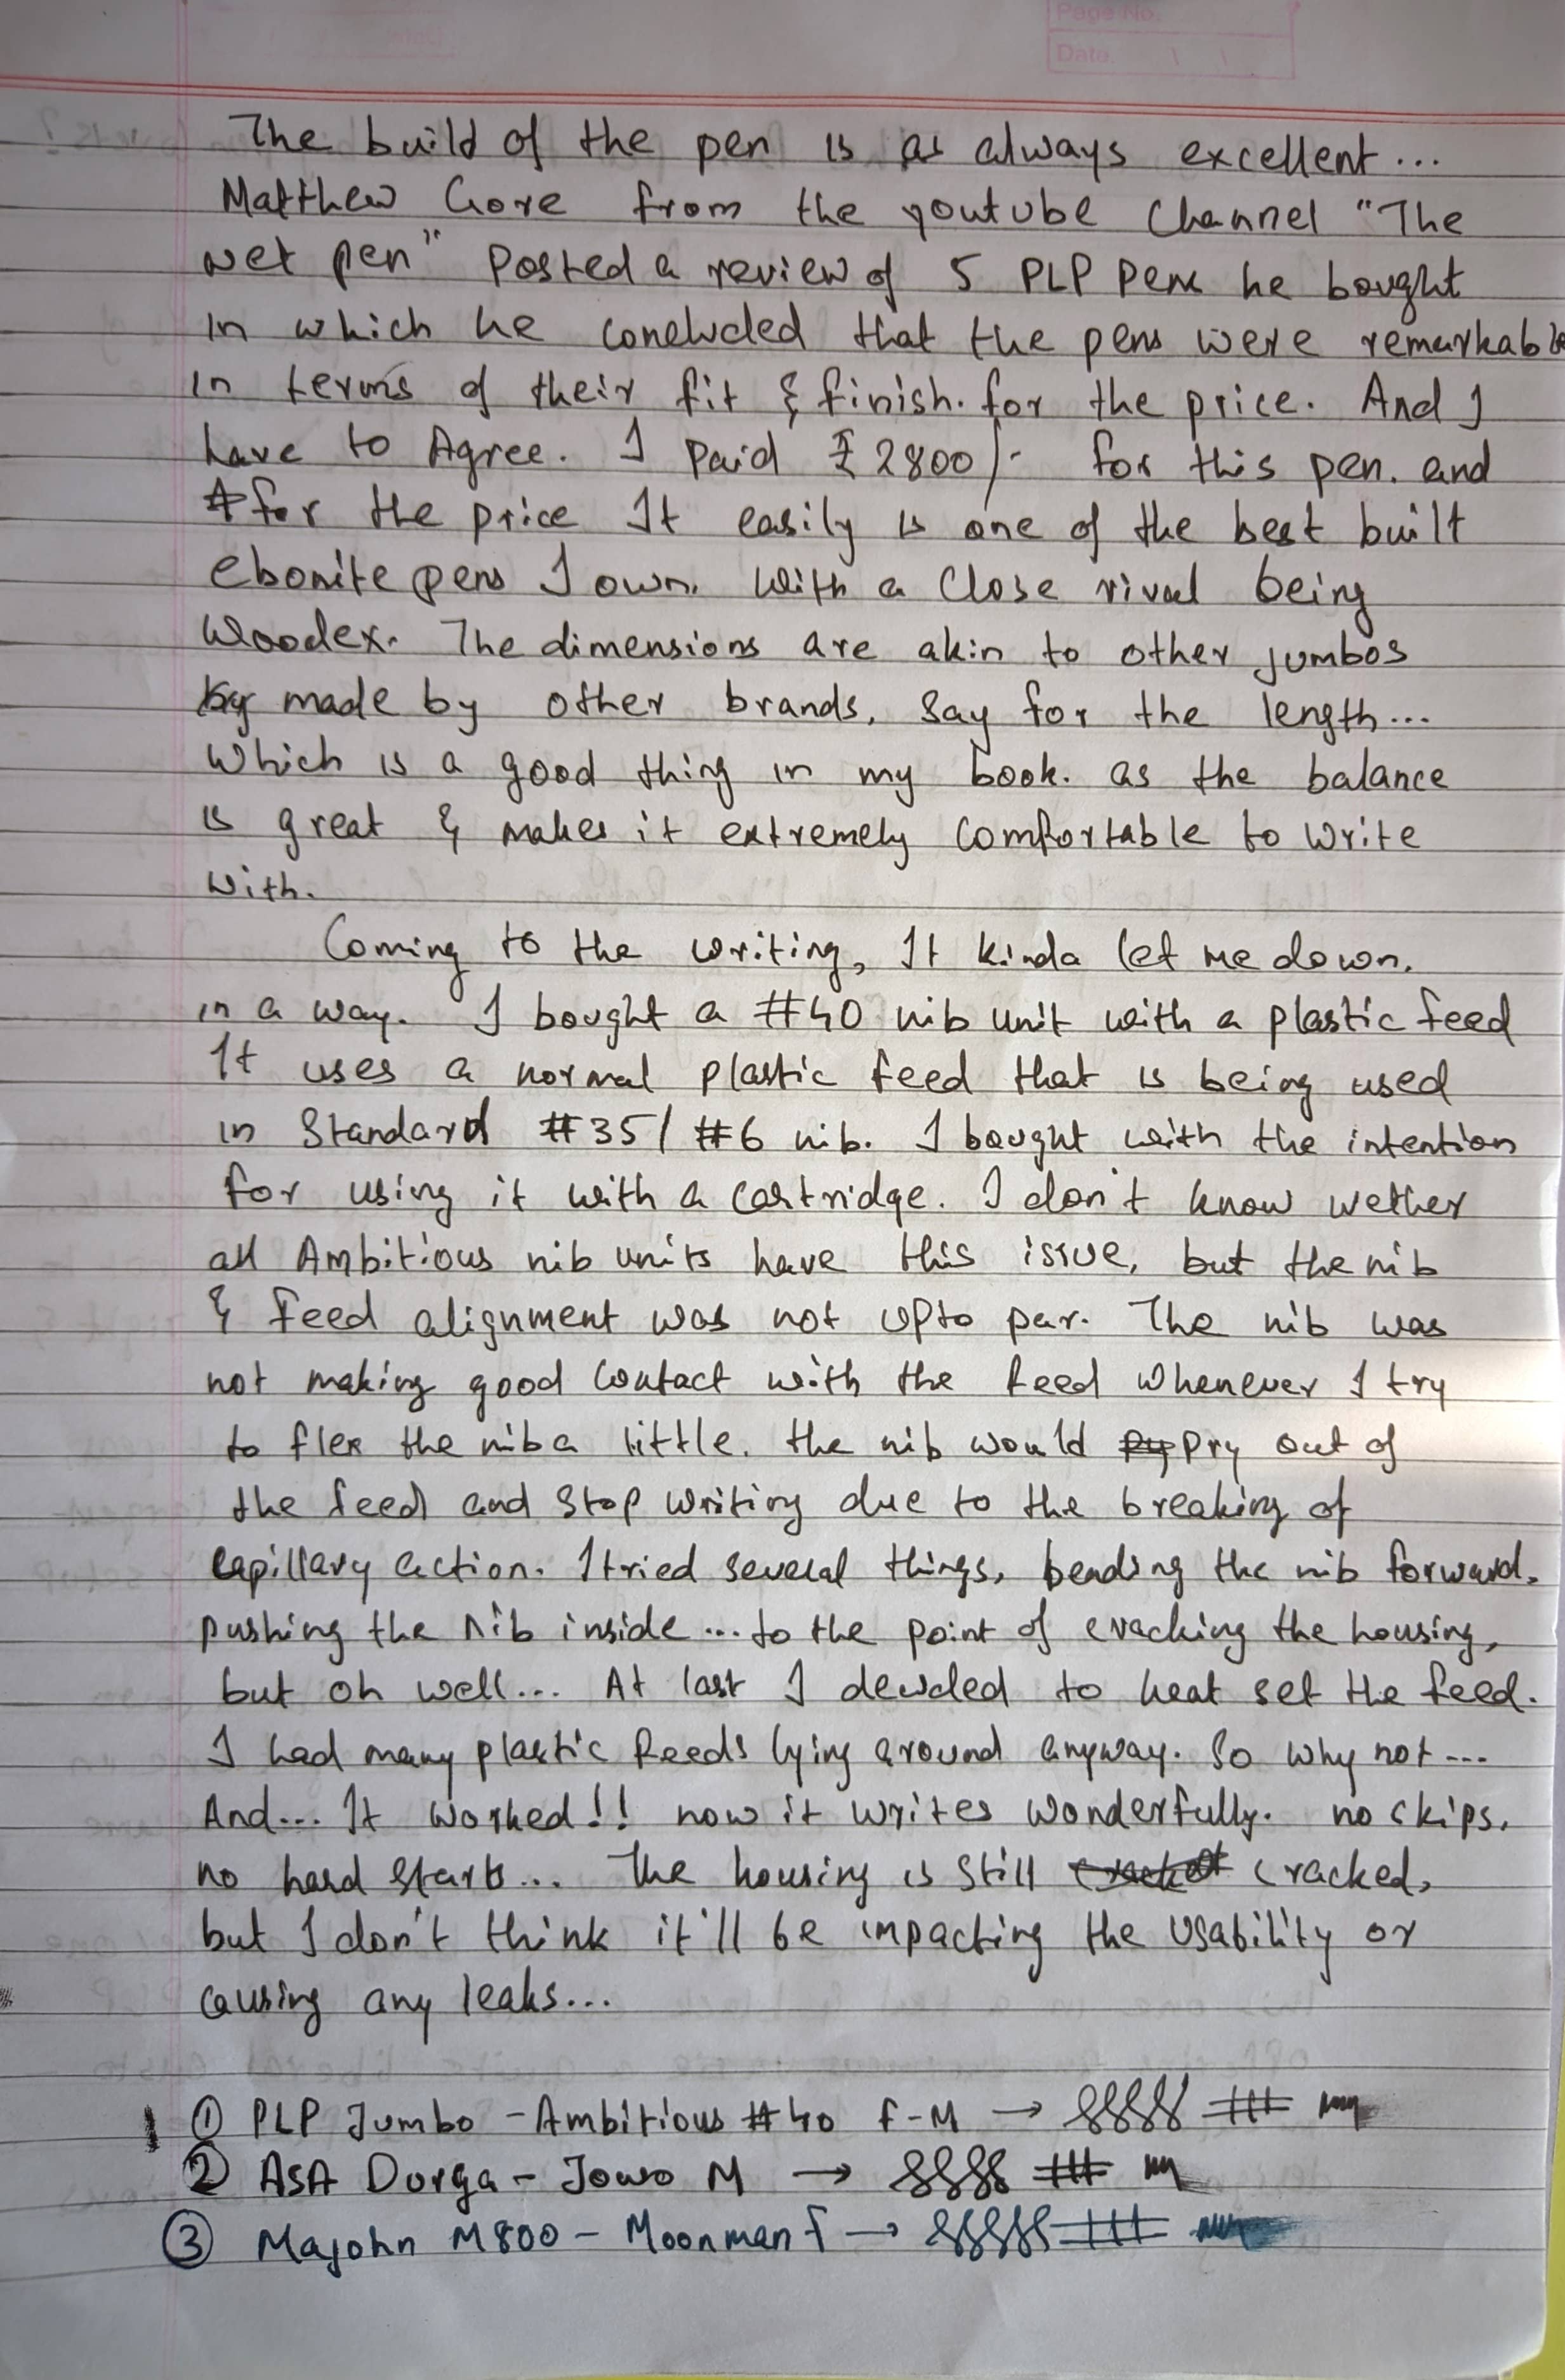 Page No.
Date.
The build of the pen is as always excellent...
Matthew Gore from the youtube Channel "The
wet pen" Posted a review of 5 PLP Pens he bought
in which he concluded that the pens were remarkable
in terms of their fit & finish. for the price. And I
have to Agree. I Paid ₹2800/- for this pen. and
for the price It easily is one of the best built
ebonite pens I own. With a Close rival being
Woodex. The dimensions are akin to other jumbos
made by other brands, Say for the length...
Which is a good thing in my book. as the balance
is great & makes it extremely Comfortable to Write
with.
Coming to the writing, It kinda let me down.
in a way. I bought a #40 nib unit with a plastic feed
It uses a normal plastic feed that is being used
in Standard #35/#6 nib. I bought with the intention
for using it with a cartridge. I don't know wether
all Ambitious nib units have this issue, but the nib
& feed alignment was not upto par. The nib was
not making good Contact with the feed Whenever I try
to flex the nib a little. the nib would pry out of
the feed and Stop Writing due to the breaking of
capillary action. I tried several things, bending the nib forward,
pushing the nib inside... to the point of cracking the housing,
but oh well... At last I decided to heat set the feed.
I had many plastic feeds lying around anyway. So why not...
And... It Worked!! now it writes wonderfully. no skips,
no hard starts... The housing is Still cracked,
but I don't think it'll be impacting the Usability or
causing any leaks...
① PLP Jumbo - Ambitious #40 F-M →
② ASA Durga - Jowo M →
③ Majohn M800 - Moonman f →